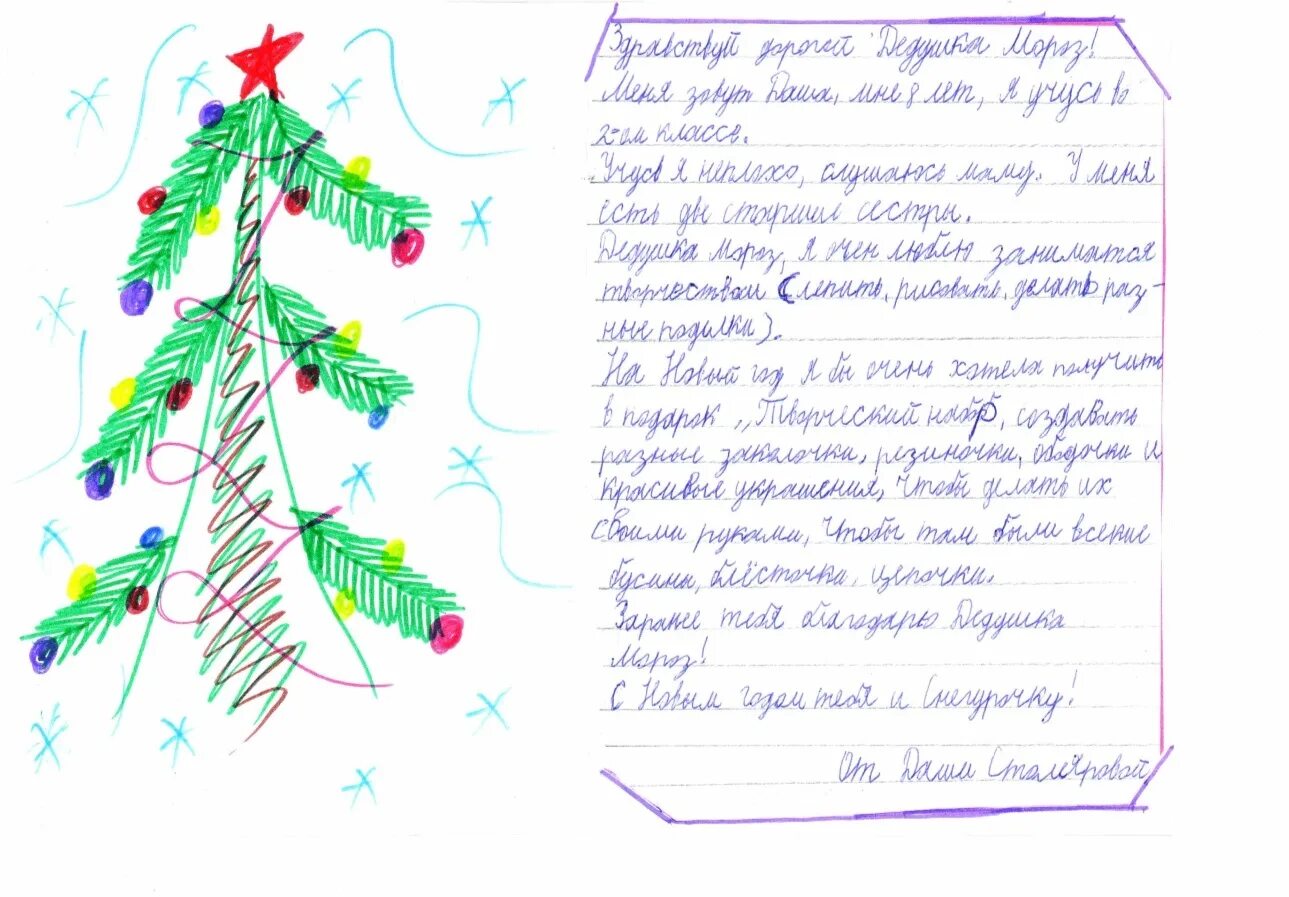 Здравствуй дорогой Дедушка Мороз!
Меня зовут Даша, мне 8 лет, я учусь во
2-ом классе.
Учусь я неплохо, слушаюсь маму. У меня
есть две старшие сестры.
Дедушка Мороз, я очен люблю заниматся
творчеством (лепить, рисовать, делать раз-
ные поделки).
На Новый год я бы очень хотела получить
в подарок ,,Творческий набор, создавать
разные заколочки, резиночки, ободочки и
красивые украшения, чтобы делать их
своими руками, чтобы там были всякие
бусины, блёсточки, цепочки.
Заранее тебя благодарю Дедушка
Мороз!
С Новым годом тебя и Снегурочку!
От Даши Столяровой